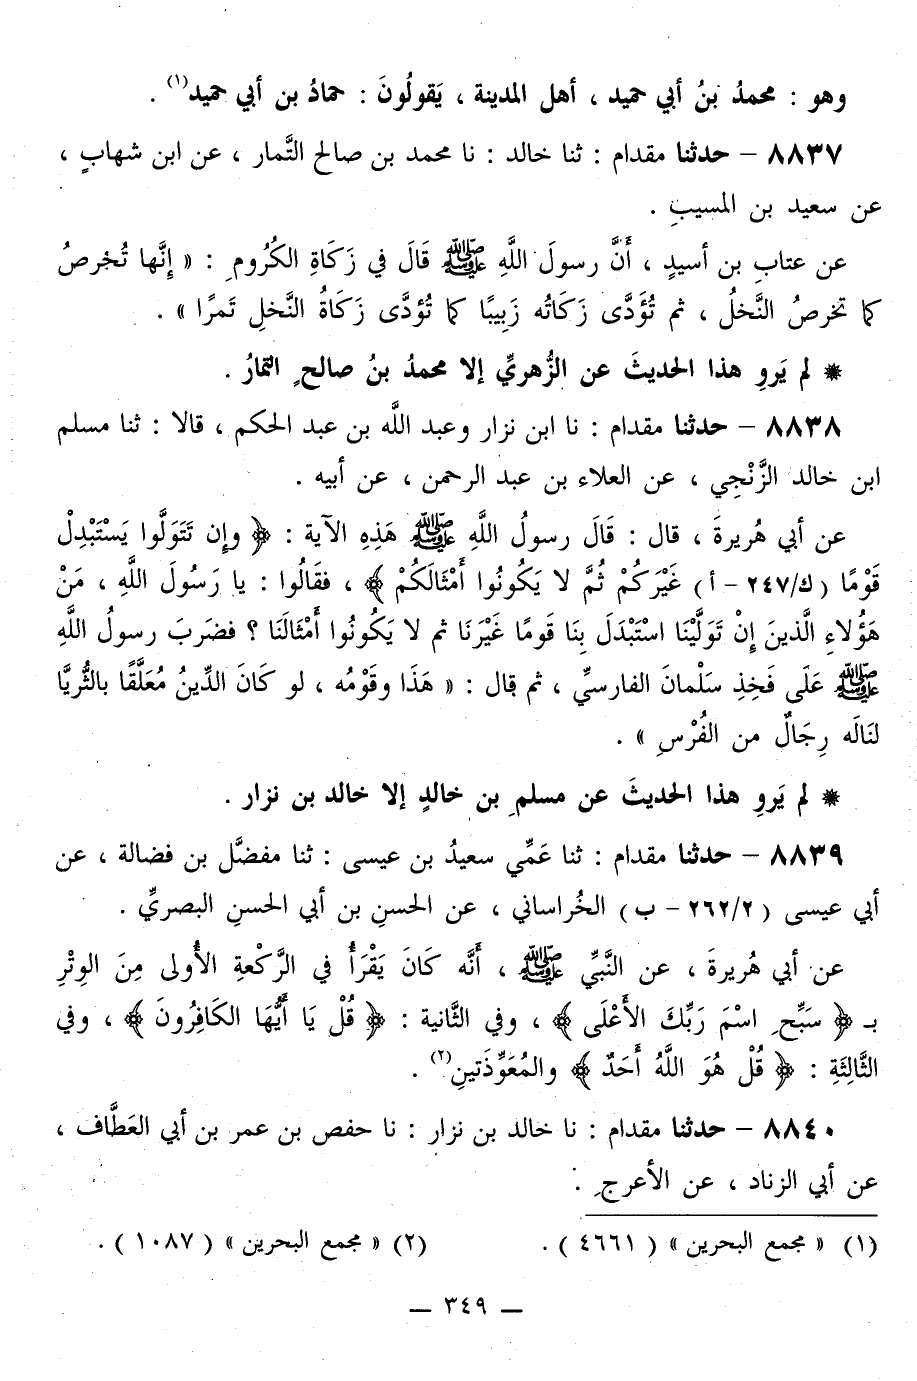 وهو : محمدُ بنُ أبي حميد ، أهل المدينة ، يَقولُونَ : حمادُ بن أبي حميد(١) .
٨٨٣٧ – حدثنا مقدام : ثنا خالد : نا محمد بن صالح التَّمار ، عن ابن شهابٍ ،
عن سعيد بن المسيبِ .
عن عتابِ بن أسيدٍ ، أَنَّ رسولَ اللَّهِ ﷺ قَالَ في زَكَاةِ الكُرُومِ : « إِنَّها تُخرصُ
كما تخرصُ النَّخلُ ، ثم تُؤَدَّى زَكَاتُه زَبِيبًا كما تُؤدَّى زَكَاةُ النَّخلِ تَمرًا » .
* لم يَروِ هذا الحديثَ عن الزُّهريِّ إلا محمدُ بنُ صالحٍ التمارُ .
٨٨٣٨ – حدثنا مقدام : نا ابن نزار وعبد اللَّه بن عبد الحكم ، قالا : ثنا مسلم
ابن خالد الزَّنْجِي ، عن العلاء بن عبد الرحمن ، عن أبيه .
عن أبي هُريرةَ ، قال : قَالَ رسولُ اللَّهِ ﷺ هَذِهِ الآية : ﴿ وإِن تَتَوَلَّوا يَسْتَبْدِلْ
قَوْمًا (ك/٢٤٧ – أ) غَيْرَكُمْ ثُمَّ لا يَكُونُوا أَمْثَالَكُمْ ﴾ ، فقَالُوا : يا رَسُولَ اللَّهِ ، مَنْ
هَؤُلاءِ الَّذينَ إِنْ تَوَلَّيْنَا اسْتَبْدَلَ بِنَا قَومًا غَيْرَنَا ثم لا يَكُونُوا أَمْثَالَنَا ؟ فضَربَ رسولُ اللَّهِ
ﷺ عَلَى فَخِذِ سَلْمانَ الفارسيِّ ، ثم قال : « هَذَا وقَوْمُه ، لو كَانَ الدِّينُ مُعَلَّقًا بالثُّريَّا
لنَالَه رِجَالٌ من الفُرْسِ » .
* لم يَروِ هذا الحديثَ عن مسلمِ بن خالدٍ إلا خالد بن نزار .
٨٨٣٩ – حدثنا مقدام : ثنا عَمِّي سعيدُ بن عيسى : ثنا مفضَّل بن فضالة ، عن
أبي عيسى (٢٦٢/٢ – ب) الخُراساني ، عن الحسنِ بن أبي الحسنِ البصريِّ .
عن أبي هُريرةَ ، عن النَّبيِّ ﷺ ، أَنَّه كَانَ يَقْرَأُ في الرَّكْعةِ الأُولى مِنَ الوِتْرِ
بـ ﴿ سَبِّحِ اسْمَ رَبِّكَ الأَعْلَى ﴾ ، وفي الثَّانية : ﴿ قُلْ يَا أَيُّهَا الكَافِرُونَ ﴾ ، وفي
الثَّالِثَةِ : ﴿ قُلْ هُوَ اللَّهُ أَحَدٌ ﴾ والمُعَوِّذَتينِ(٢) .
٨٨٤٠ – حدثنا مقدام : نا خالد بن نزار : نا حفص بن عمر بن أبي العَطَّاف ،
عن أبي الزناد ، عن الأعرجِ .
(١) « مجمع البحرين » (٤٦٦١) . (٢) « مجمع البحرين » (١٠٨٧) .
— ٣٤٩ —